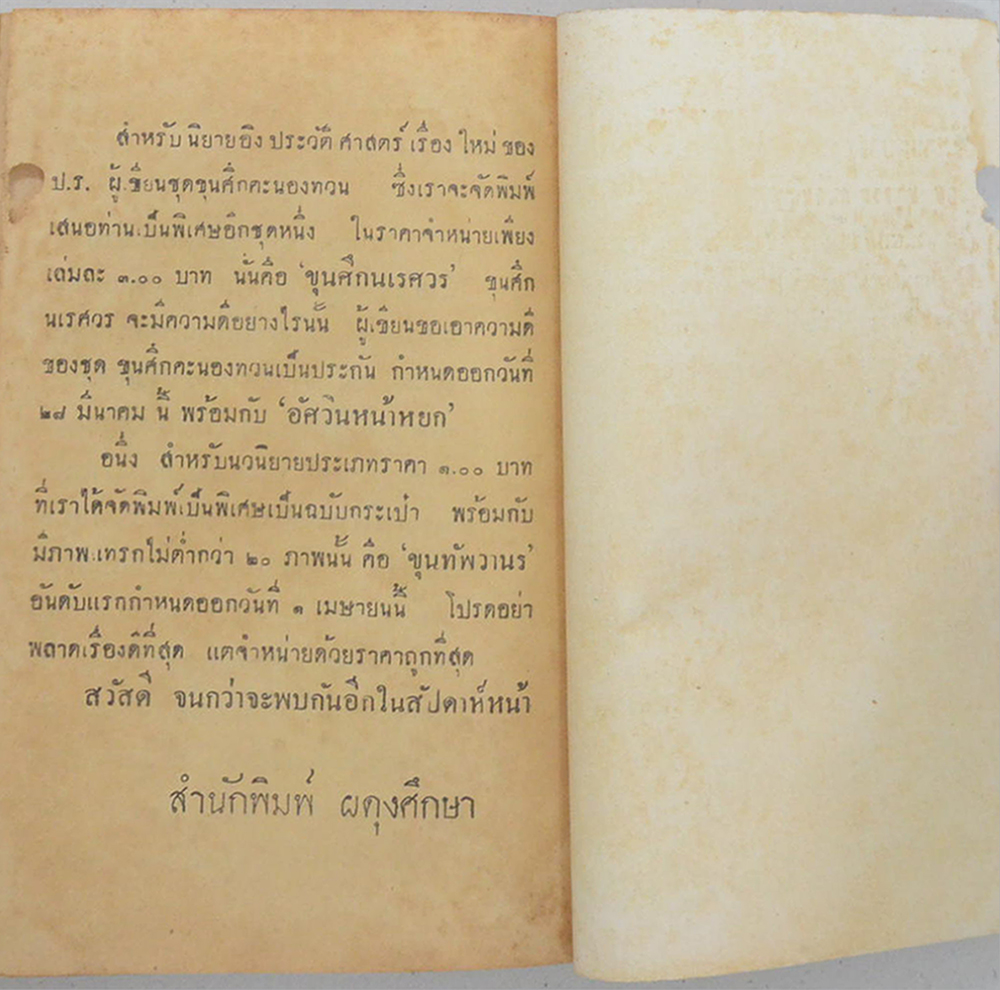 สำหรับ นิยายอิง ประวัติ ศาสตร์ เรื่อง ใหม่ ของ
ป.ร. ผู้เขียนชุดขุนศึกคะนองทวน ซึ่งเราจะจัดพิมพ์
เสนอท่านเป็นพิเศษอีกชุดหนึ่ง ในราคาจำหน่ายเพียง
เล่มละ ๓.๐๐ บาท นั่นคือ ‘ขุนศึกนเรศวร’ ขุนศึก
นเรศวร จะมีความดีอย่างไรนั้น ผู้เขียนขอเอาความดี
ของชุด ขุนศึกคะนองทวนเป็นประกัน กำหนดออกวันที่
๒๘ มีนาคม นี้ พร้อมกับ ‘อัศวินหน้าหยก’
อนึ่ง สำหรับนวนิยายประเภทราคา ๑.๐๐ บาท
ที่เราได้จัดพิมพ์เป็นพิเศษเป็นฉบับกระเป๋า พร้อมกับ
มีภาพแทรกไม่ต่ำกว่า ๒๐ ภาพนั้น คือ ‘ขุนทัพวานร’
อันดับแรกกำหนดออกวันที่ ๑ เมษายนนี้ โปรดอย่า
พลาดเรื่องดีที่สุด แต่จำหน่ายด้วยราคาถูกที่สุด
สวัสดี จนกว่าจะพบกันอีกในสัปดาห์หน้า
สำนักพิมพ์ ผดุงศึกษา